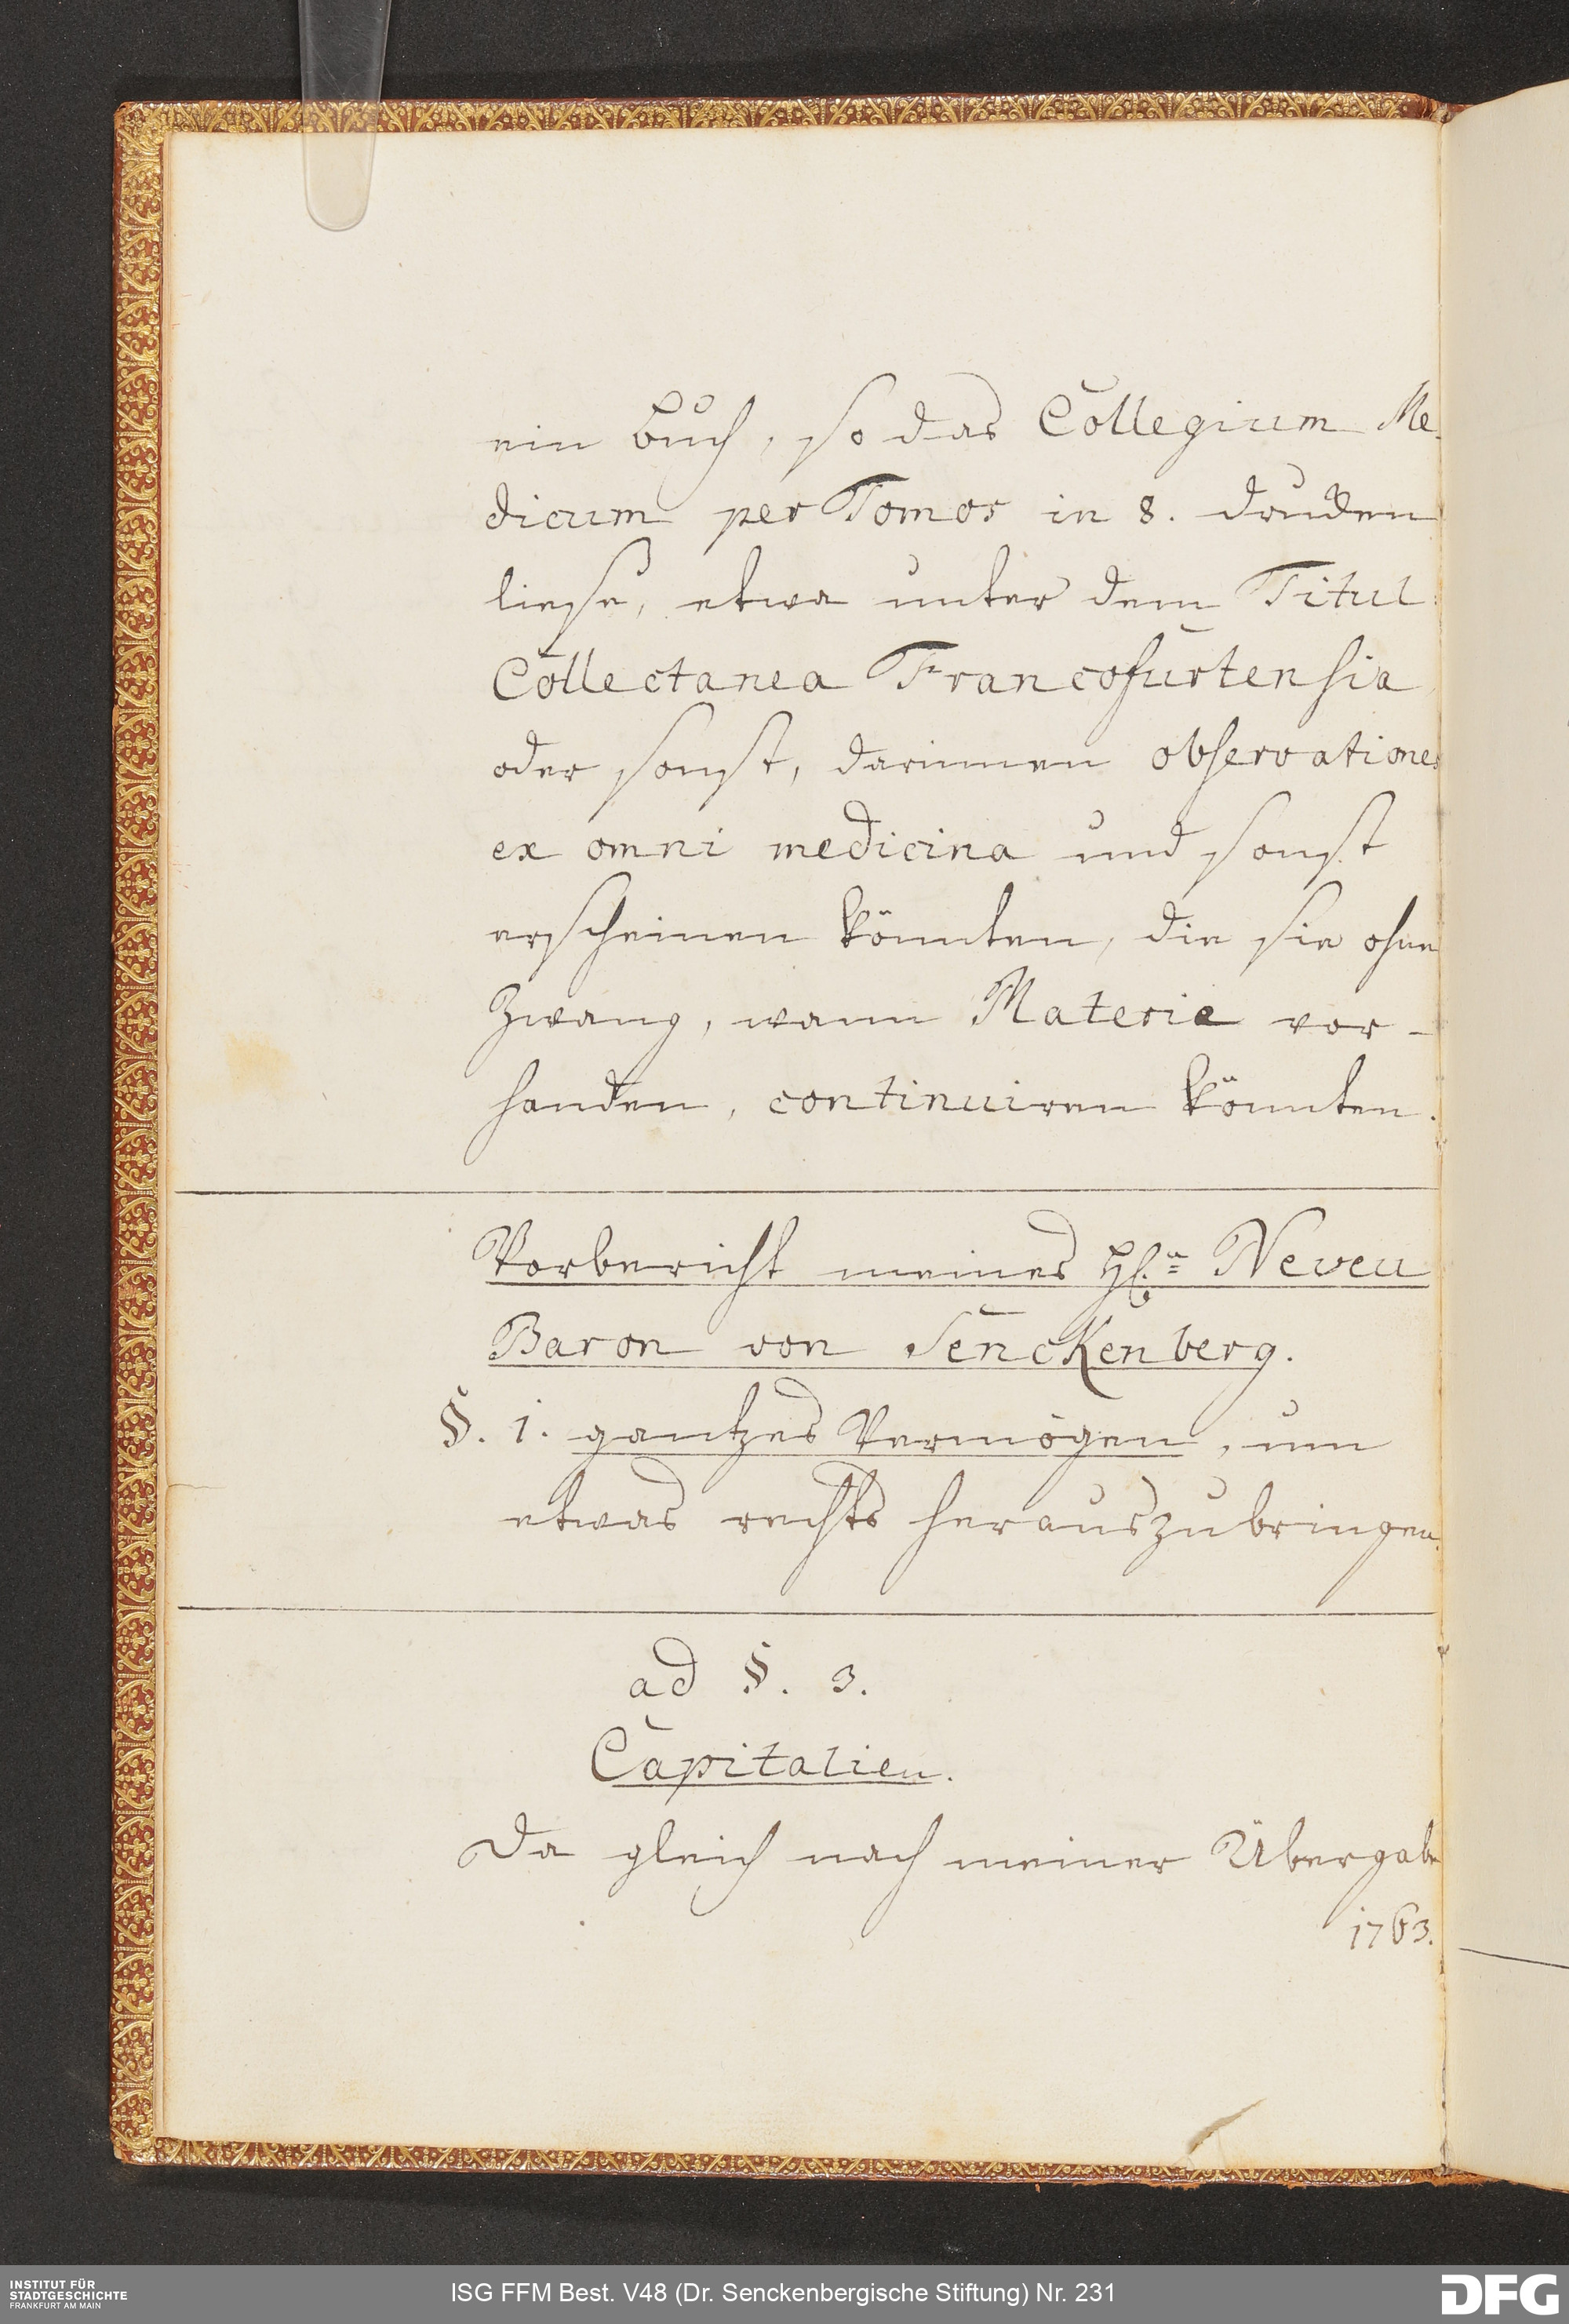 ein Buch, so das Collegium Me-
dicum per Tomos in 8. drucken
liese, etwa unter dem Titul
Collectanea Francofurtensia
oder sonst, darinnen observationes
ex omni medicina und sonst
erscheinen könnten, die sie ohne
Zwang, wann Materie vor-
handen, continuiren könnten.
Vorbericht meines Hl.n Neveu
Baron von Senckenberg.
§. 1. gantzes Vermögen, um
etwas rechts herauszubringen.
ad §. 3.
Capitalien.
Da gleich nach meiner Übergabe
1763.
INSTITUT FÜR
STADTGESCHICHTE
FRANKFURT AM MAIN
ISG FFM Best. V48 (Dr. Senckenbergische Stiftung) Nr. 231
DFG